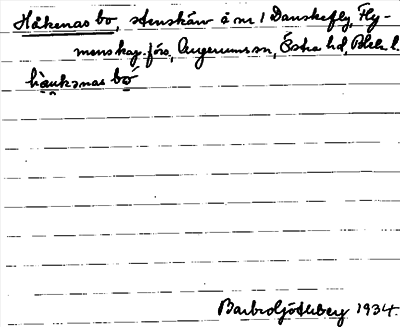 Håkenas bo, stenskärv å nr 1 Danskefly, Fly-
menskap. förs, Augerums sn, Östra hd, Blek. l.
hà̀ukənas bó
Barbro Ljötteberg 1934.